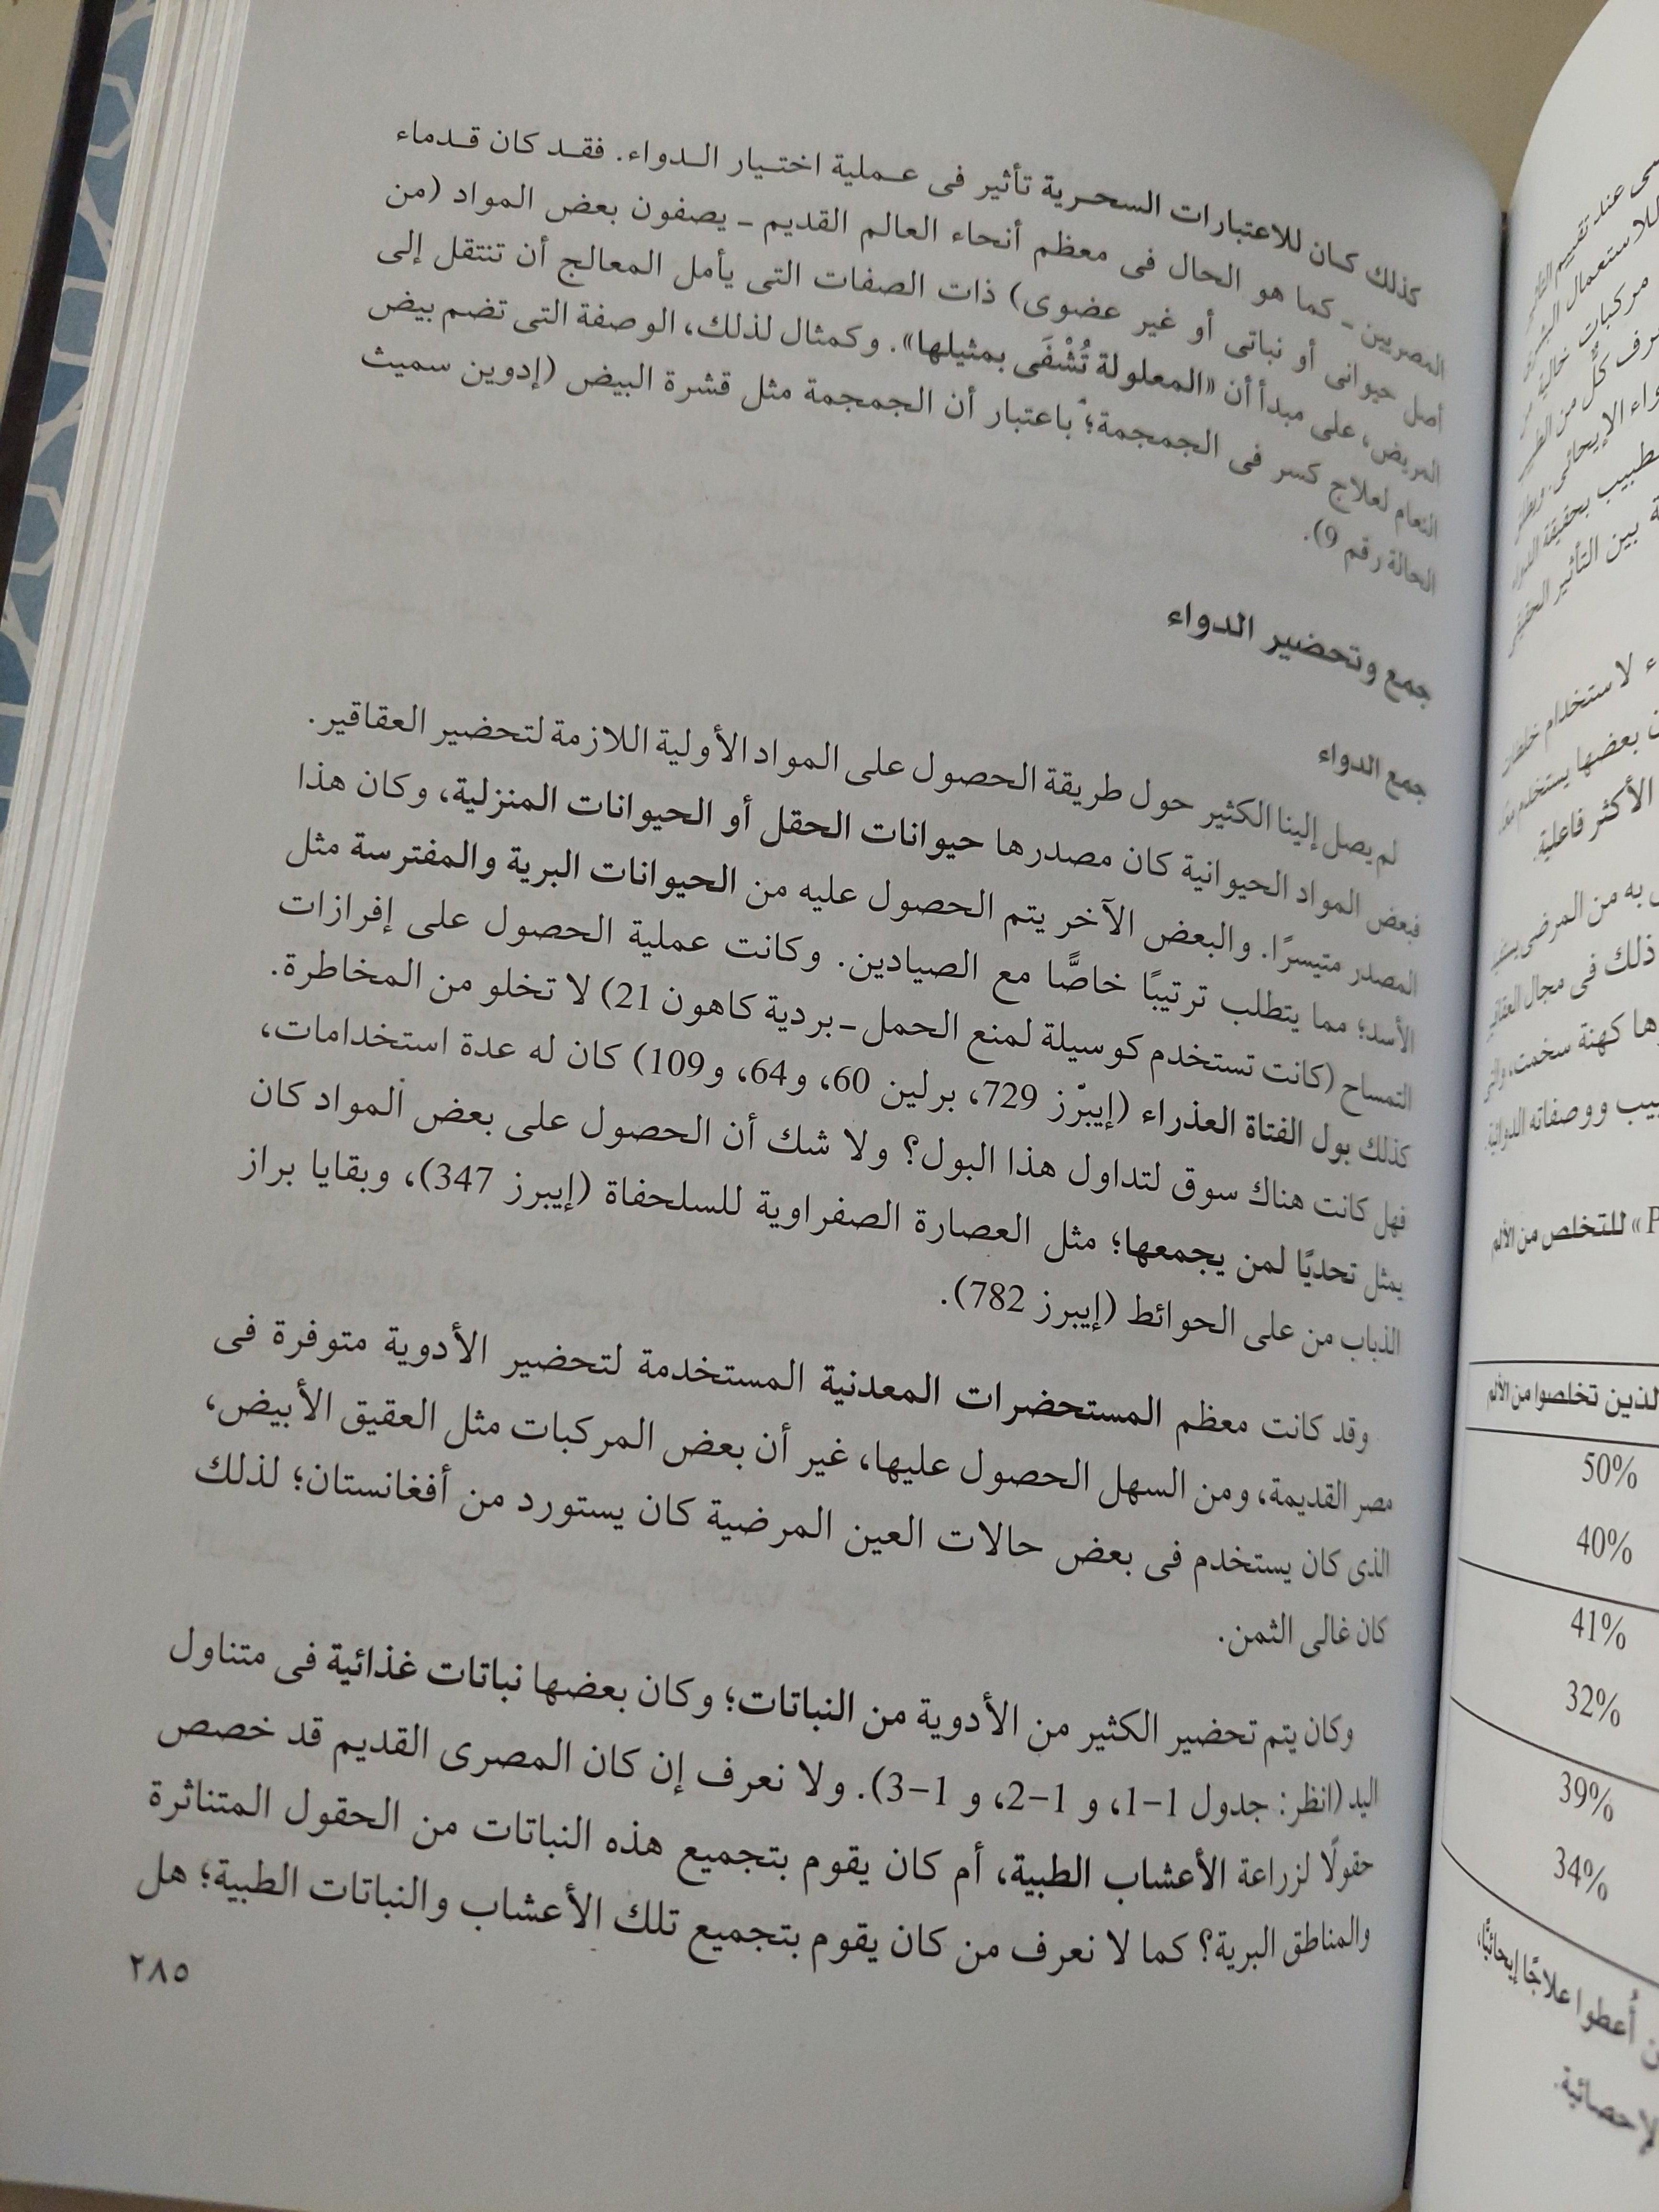 كذلك كان للاعتبارات السحرية تأثير فى عملية اختيار الدواء. فقد كان قدماء
المصريين ـ كما هو الحال فى معظم أنحاء العالم القديم ـ يصفون بعض المواد (من
أصل حيوانى أو نباتى أو غير عضوى) ذات الصفات التى يأمل المعالج أن تنتقل إلى
المريض، على مبدأ أن «المعلولة تُشْفَى بمثيلها». وكمثال لذلك، الوصفة التى تضم بيض
النعام لعلاج كسر فى الجمجمة؛ باعتبار أن الجمجمة مثل قشرة البيض (إدوين سميث
الحالة رقم 9).
جمع وتحضير الدواء
جمع الدواء
لم يصل إلينا الكثير حول طريقة الحصول على المواد الأولية اللازمة لتحضير العقاقير.
فبعض المواد الحيوانية كان مصدرها حيوانات الحقل أو الحيوانات المنزلية، وكان هذا
المصدر متيسرًا. والبعض الآخر يتم الحصول عليه من الحيوانات البرية والمفترسة مثل
الأسد؛ مما يتطلب ترتيبًا خاصًّا مع الصيادين. وكانت عملية الحصول على إفرازات
التمساح (كانت تستخدم كوسيلة لمنع الحمل ـ بردية كاهون 21) لا تخلو من المخاطرة.
كذلك بول الفتاة العذراء (إيبرز 729، برلين 60، و64، و109) كان له عدة استخدامات،
فهل كانت هناك سوق لتداول هذا البول؟ ولا شك أن الحصول على بعض المواد كان
يمثل تحديًا لمن يجمعها؛ مثل العصارة الصفراوية للسلحفاة (إيبرز 347)، وبقايا براز
الذباب من على الحوائط (إيبرز 782).
وقد كانت معظم المستحضرات المعدنية المستخدمة لتحضير الأدوية متوفرة فى
مصر القديمة، ومن السهل الحصول عليها، غير أن بعض المركبات مثل العقيق الأبيض،
الذى كان يستخدم فى بعض حالات العين المرضية كان يستورد من أفغانستان؛ لذلك
كان غالى الثمن.
وكان يتم تحضير الكثير من الأدوية من النباتات؛ وكان بعضها نباتات غذائية فى متناول
اليد (انظر: جدول 1-1، و 1-2، و 1-3). ولا نعرف إن كان المصرى القديم قد خصص
حقولًا لزراعة الأعشاب الطبية، أم كان يقوم بتجميع هذه النباتات من الحقول المتناثرة
والمناطق البرية؟ كما لا نعرف من كان يقوم بتجميع تلك الأعشاب والنباتات الطبية؛ هل
٢٨٥
عند تقييم
للاستعمال
مركبات خالية
كلٌّ من
بين التأثير
لاستخدام
بعضها يستخدم
الأكثر فاعلية.
به من المرضى
ذلك فى مجال
كهنة سخمت،
ووصفاته الدوائية.
» للتخلص من الألم
الذين تخلصوا من الألم
50%
40%
41%
32%
39%
34%
أُعطوا علاجًا إيحائيًّا،